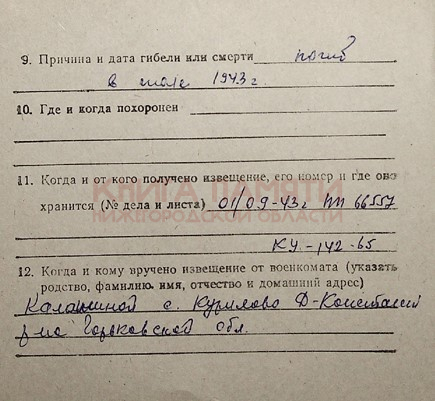 9. Причина и дата гибели или смерти погиб
в июле 1943 г
10. Где и когда похоронен
11. Когда и от кого получено извещение, его номер и где оно
хранится (№ дела и листа) 01/09-43г пп 66557
КНИГА ПАМЯТИ
НИЖЕГОРОДСКОЙ ОБЛАСТИ
КУ-142-65
12. Когда и кому вручено извещение от военкомата (указать
родство, фамилию, имя, отчество и домашний адрес)
Калининой с. Курилово Д-Константин
р-на Горьковской обл.